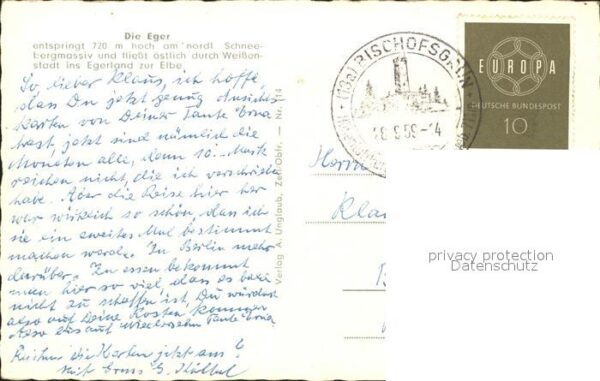 Die Eger
entspringt 720 m hoch am nördl Schnee-
bergmassiv und fließt östlich durch Weißen-
stadt ins Egerland zur Elbe.
So, lieber Klaus, ich hoffe
dass Du jetzt genug Ansichts-
karten von Deiner Tante Erna
hast, jetzt sind nämlich die
Moneten alle, denn 10.- Mark
reichen nicht, die ich verschrieben
habe. Aber die Reise hier her
war wirklich so schön, dass ich
sie ein zweites Mal bestimmt
machen werde. In Berlin mehr
darüber. Zu essen bekommt
man hier so viel, dass es bald
nicht zu schaffen ist, Du würdest
also auf Deine Kosten kommen
Also bis auf Wiedersehn Tante Erna
die Karten jetzt aus?
Gruss
Verlag A. Unglaub, Zell Obfr. — Nr. 114
(13a) BISCHOFSGRÜN
18.9.59-14
EUROPA
DEUTSCHE BUNDESPOST
10
Herrn
Kla
privacy protection
Datenschutz